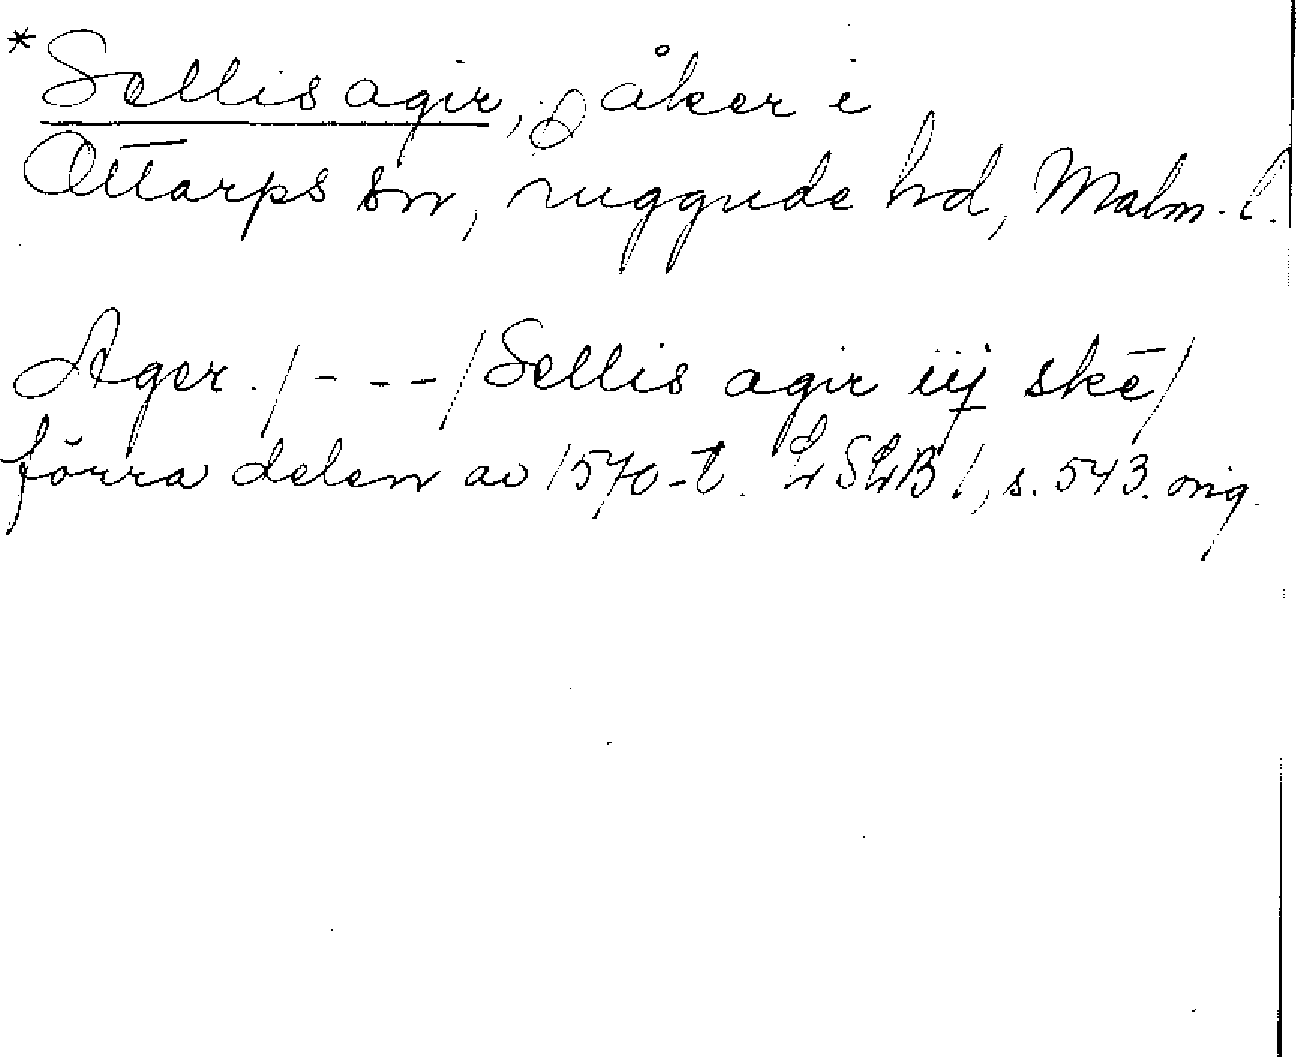 *Sellis agir, åker i
Ottarps sn, ruggude hd, Malm. l.
Ager. /---/ Sellis agir iij skē/
förra delen av 1570-t. LSLB 1, s. 543. orig.